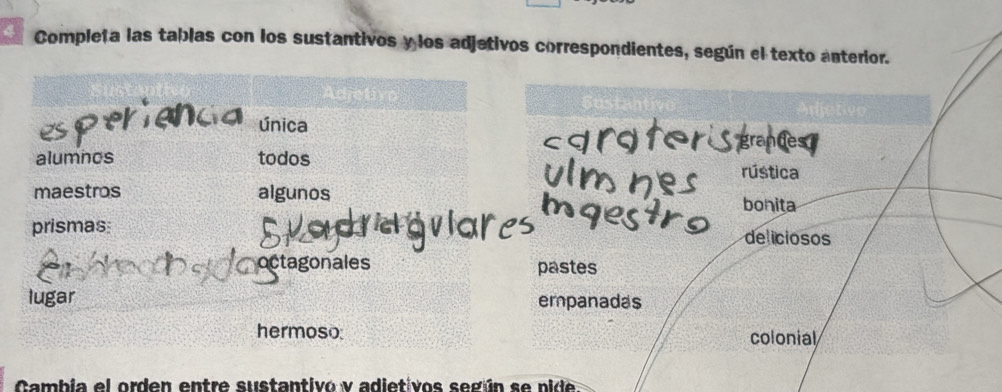 4 Completa las tablas con los sustantivos y los adjetivos correspondientes, según el texto anterior.
Sustantivo Adjetivo
esperiancia única
alumnos todos
maestros algunos
prismas: Suadrigulares
octagonales
lugar
hermoso:
Sustantivo Adjetivo
carateris grandes
ulmnes rústica
maestro bonita
deliciosos
pastes
empanadas
colonial
Cambia el orden entre sustantivo y adjetivos según se pide.